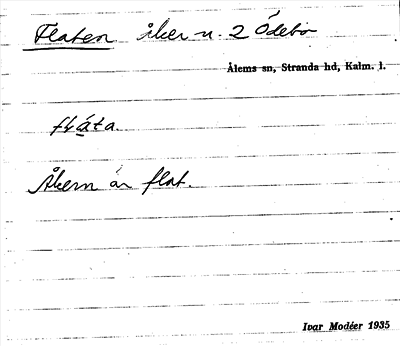 Flaten åker n. 2 Ödebo
Ålems sn, Stranda hd, Kalm. l.
flata.
Åkern är flat.
Ivar Modéer 1935